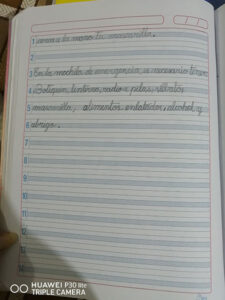 1 cerca a la mano tu mascarilla.
2
3 En la mochila de emergencia es necesario tener
4 Botiquín, linterna, radio a pilas, silbatos
5 mascarilla, alimentos enlatados, alcohol y
6 abrigo.
7
8
9
10
11
12
13
14
HUAWEI P30 lite
TRIPLE CAMERA